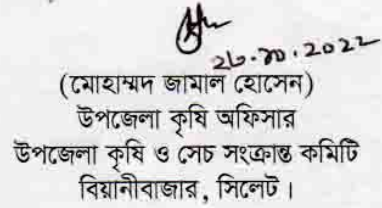 ২৬.১০.২০২২
(মোহাম্মদ জামাল হোসেন)
উপজেলা কৃষি অফিসার
উপজেলা কৃষি ও সেচ সংক্রান্ত কমিটি
বিয়ানীবাজার, সিলেট।